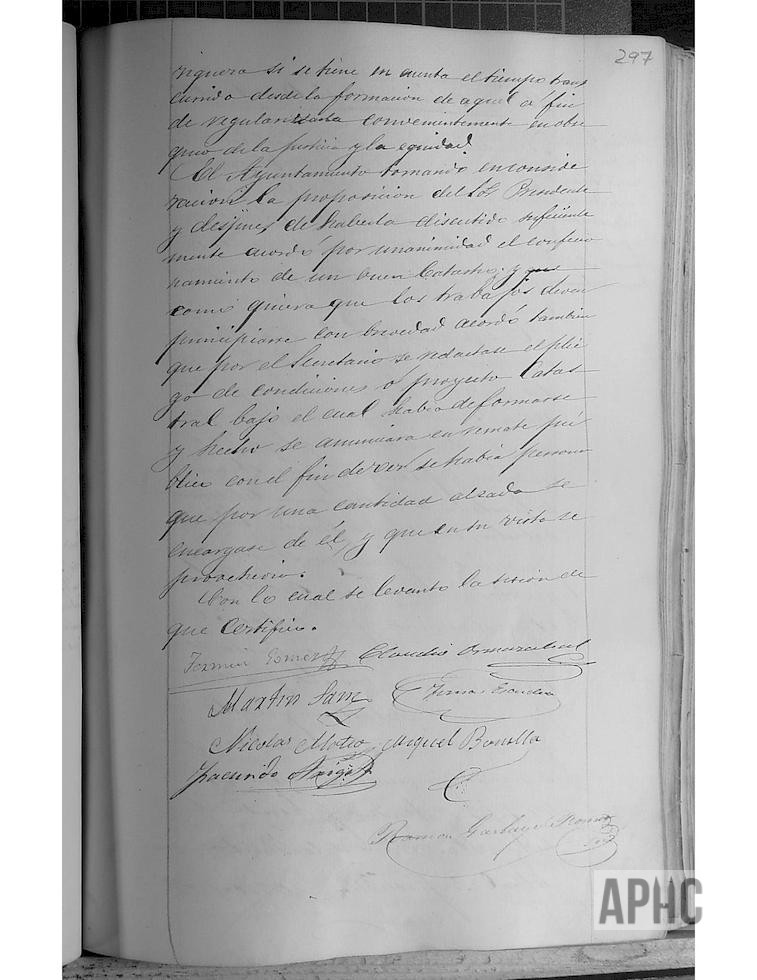 297
riguroso si se tiene en cuenta el tiempo trans
currido desde la formacion de aquel a fin
de regularizarla convenientemente en obse
quio de la justicia y la equidad.
El Ayuntamiento tomando en conside
racion la proposicion del Sor Presidente
y despues de haberla discutido suficiente
mente acordó por unanimidad el confeccio
namiento de un buen Catastro; y que
como quiera que los trabajos deven
principiarse con brevedad acordó tambien
que por el Secretario se redactase el plie
go de condiciones o proyecto Catas
tral bajo el cual habia de formarse
y hecho se anunciara en remate pú
blico con el fin de ver si habia persona
que por una cantidad alzada se
encargase de él, y que en su vista se
proveheria.
Con lo cual se levanto la sesion de
que Certifico.
Fermin Claudio
Martin Sanz
Nicolas Mateo Miguel Bonilla
Facundo
Ramon
APHC